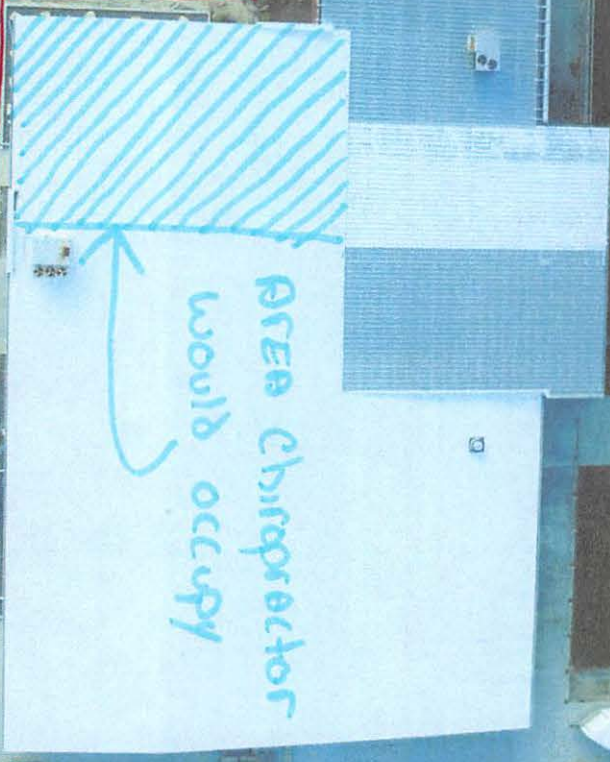 Area Chiropractor
would occupy